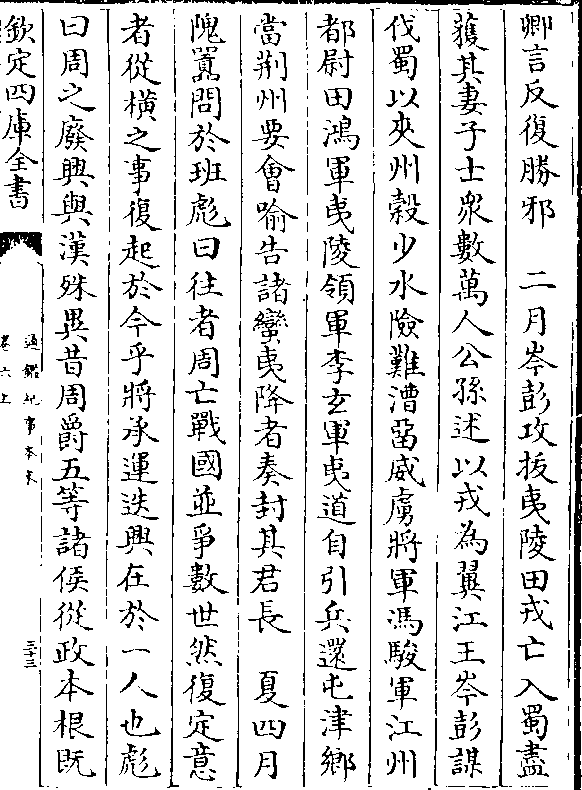 卿言反復勝邪　二月岑彭攻抜夷陵田戎亡入蜀盡
獲其妻子士衆數萬人公孫述以戎為翼江王岑彭謀
伐蜀以夾州榖少水險難漕留威虜將軍馮駿軍江州
都尉田鴻軍夷陵領軍李玄軍夷道自引兵還屯津鄉
當荆州要會喻告諸蠻夷降者奏封其君長　夏四月
隗囂問於班彪曰往者周亡戰國並爭數世然後定意
者從橫之事復起於今乎將承運迭興在於一人也彪
曰周之廢興與漢殊異昔周爵五等諸侯從政本根既
欽定四庫全書
通鑑紀事本末
卷六上
三十三